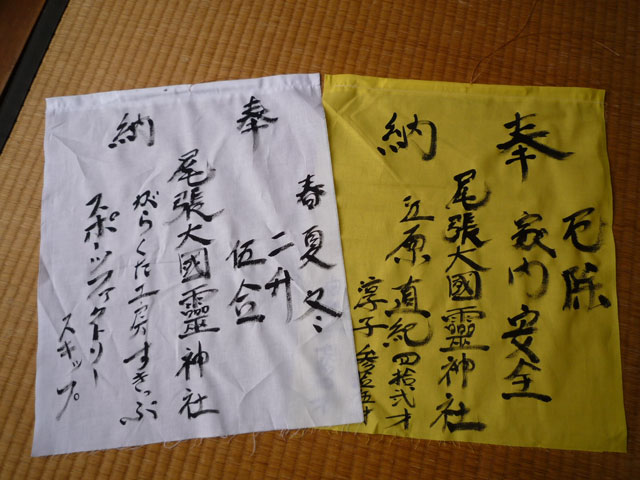 奉納
春夏冬
二升
伍合
尾張大國霊神社
がらくた工房すきっぷ
スポーツファクトリー
スキップ
奉納
厄除
家内安全
尾張大國霊神社
江原直紀四拾弐才
淳子参拾五才